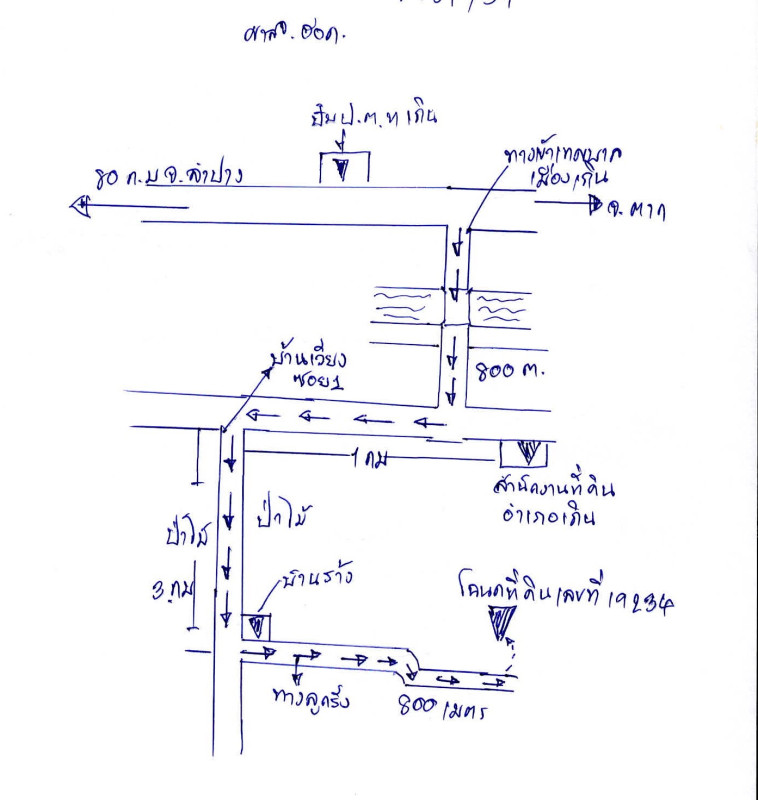 ปั๊ม ป.ต.ท เถิน
ทางเข้าเทศบาล
เมืองเถิน
80 ก.ม จ.ลำปาง
จ.ตาก
บ้านเวียง
ซอย 1
800 ต.
1 กม
สำนักงานที่ดิน
อำเภอเถิน
ป่าไม้
ป่าไม้
3 กม
บ้านร้าง
โฉนดที่ดินเลขที่ 19234
ทางลูกรัง
800 เมตร